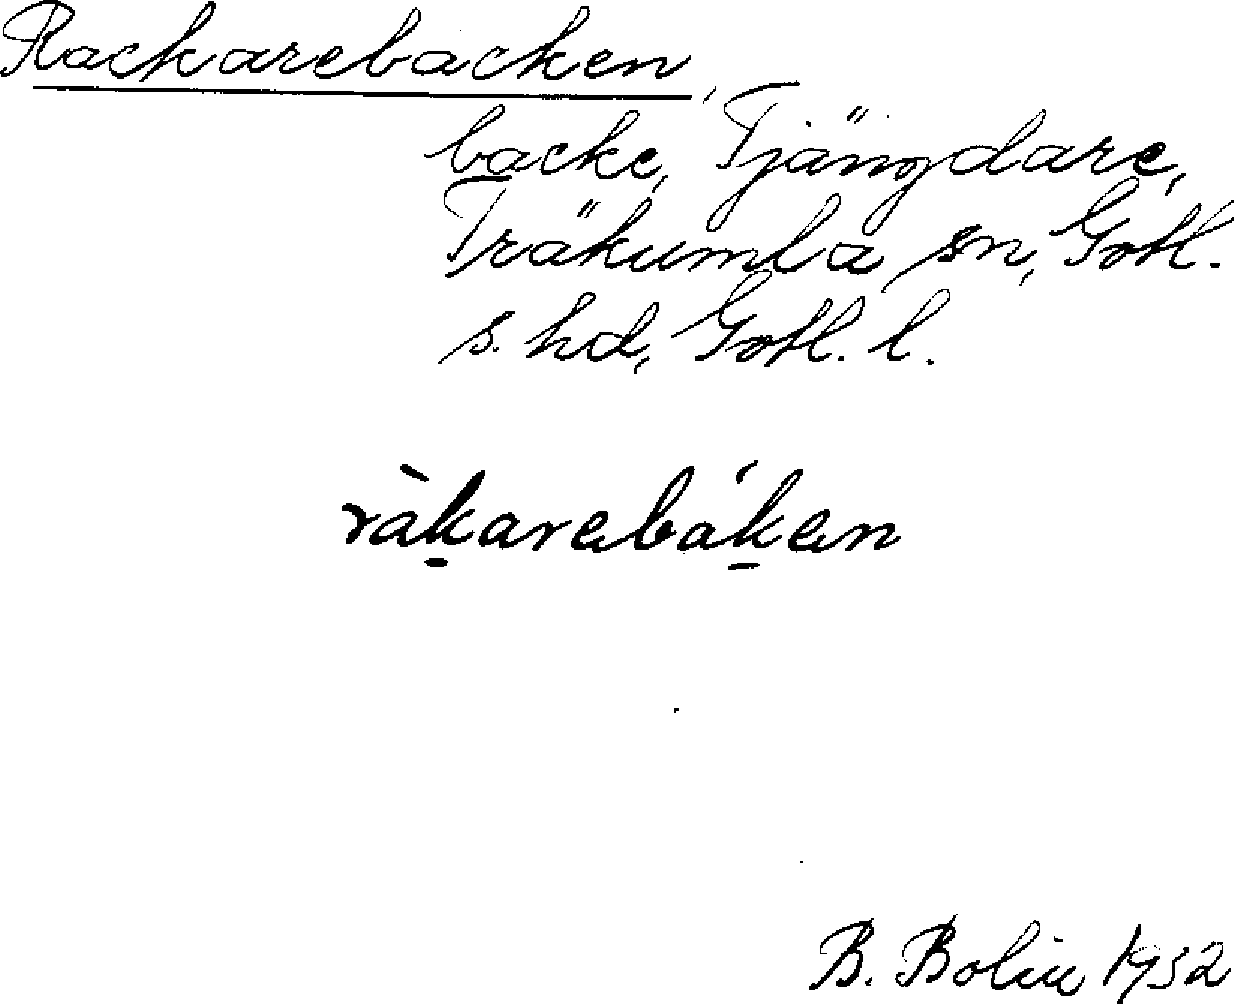 Rackarebacken,
backe, Tjängdare,
Träkumla sn, Gotl.
s. hd, Gotl. l.
ràk̠arebák̠en
B. Bolin 1932